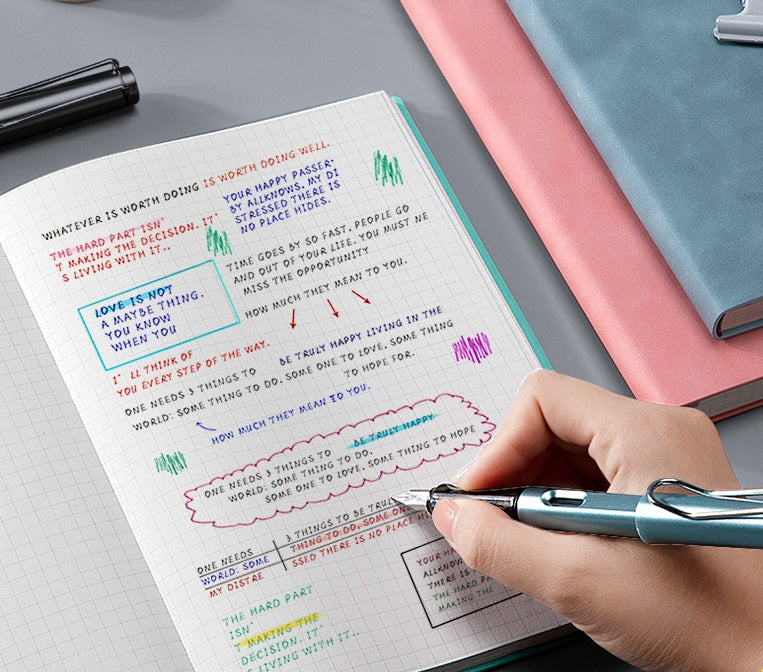 WHATEVER IS WORTH DOING IS WORTH DOING WELL.
THE HARD PART ISN'
T MAKING THE DECISION. IT'
S LIVING WITH IT..
YOUR HAPPY PASSER-
BY ALLKNOWS, MY DI
STRESSED THERE IS
NO PLACE HIDES.
TIME GOES BY SO FAST, PEOPLE GO
AND OUT OF YOUR LIFE. YOU MUST NE
MISS THE OPPORTUNITY
HOW MUCH THEY MEAN TO YOU.
LOVE IS NOT
A MAYBE THING.
YOU KNOW
WHEN YOU
I' LL THINK OF
YOU EVERY STEP OF THE WAY.
BE TRULY HAPPY LIVING IN THE
ONE NEEDS 3 THINGS TO
WORLD: SOME THING TO DO, SOME ONE TO LOVE, SOME THING
TO HOPE FOR.
HOW MUCH THEY MEAN TO YOU.
ONE NEEDS 3 THINGS TO BE TRULY HAPPY
WORLD: SOME THING TO DO,
SOME ONE TO LOVE, SOME THING TO HOPE
ONE NEEDS 3 THINGS TO BE TRULY
WORLD: SOME THING TO DO, SOME ONE
MY DISTRE SSED THERE IS NO PLACE H
YOUR HA
ALLKNOW
THERE IS
THE HARD PA
MAKING THE
THE HARD PART
ISN'
T MAKING THE
DECISION. IT'
S LIVING WITH IT..